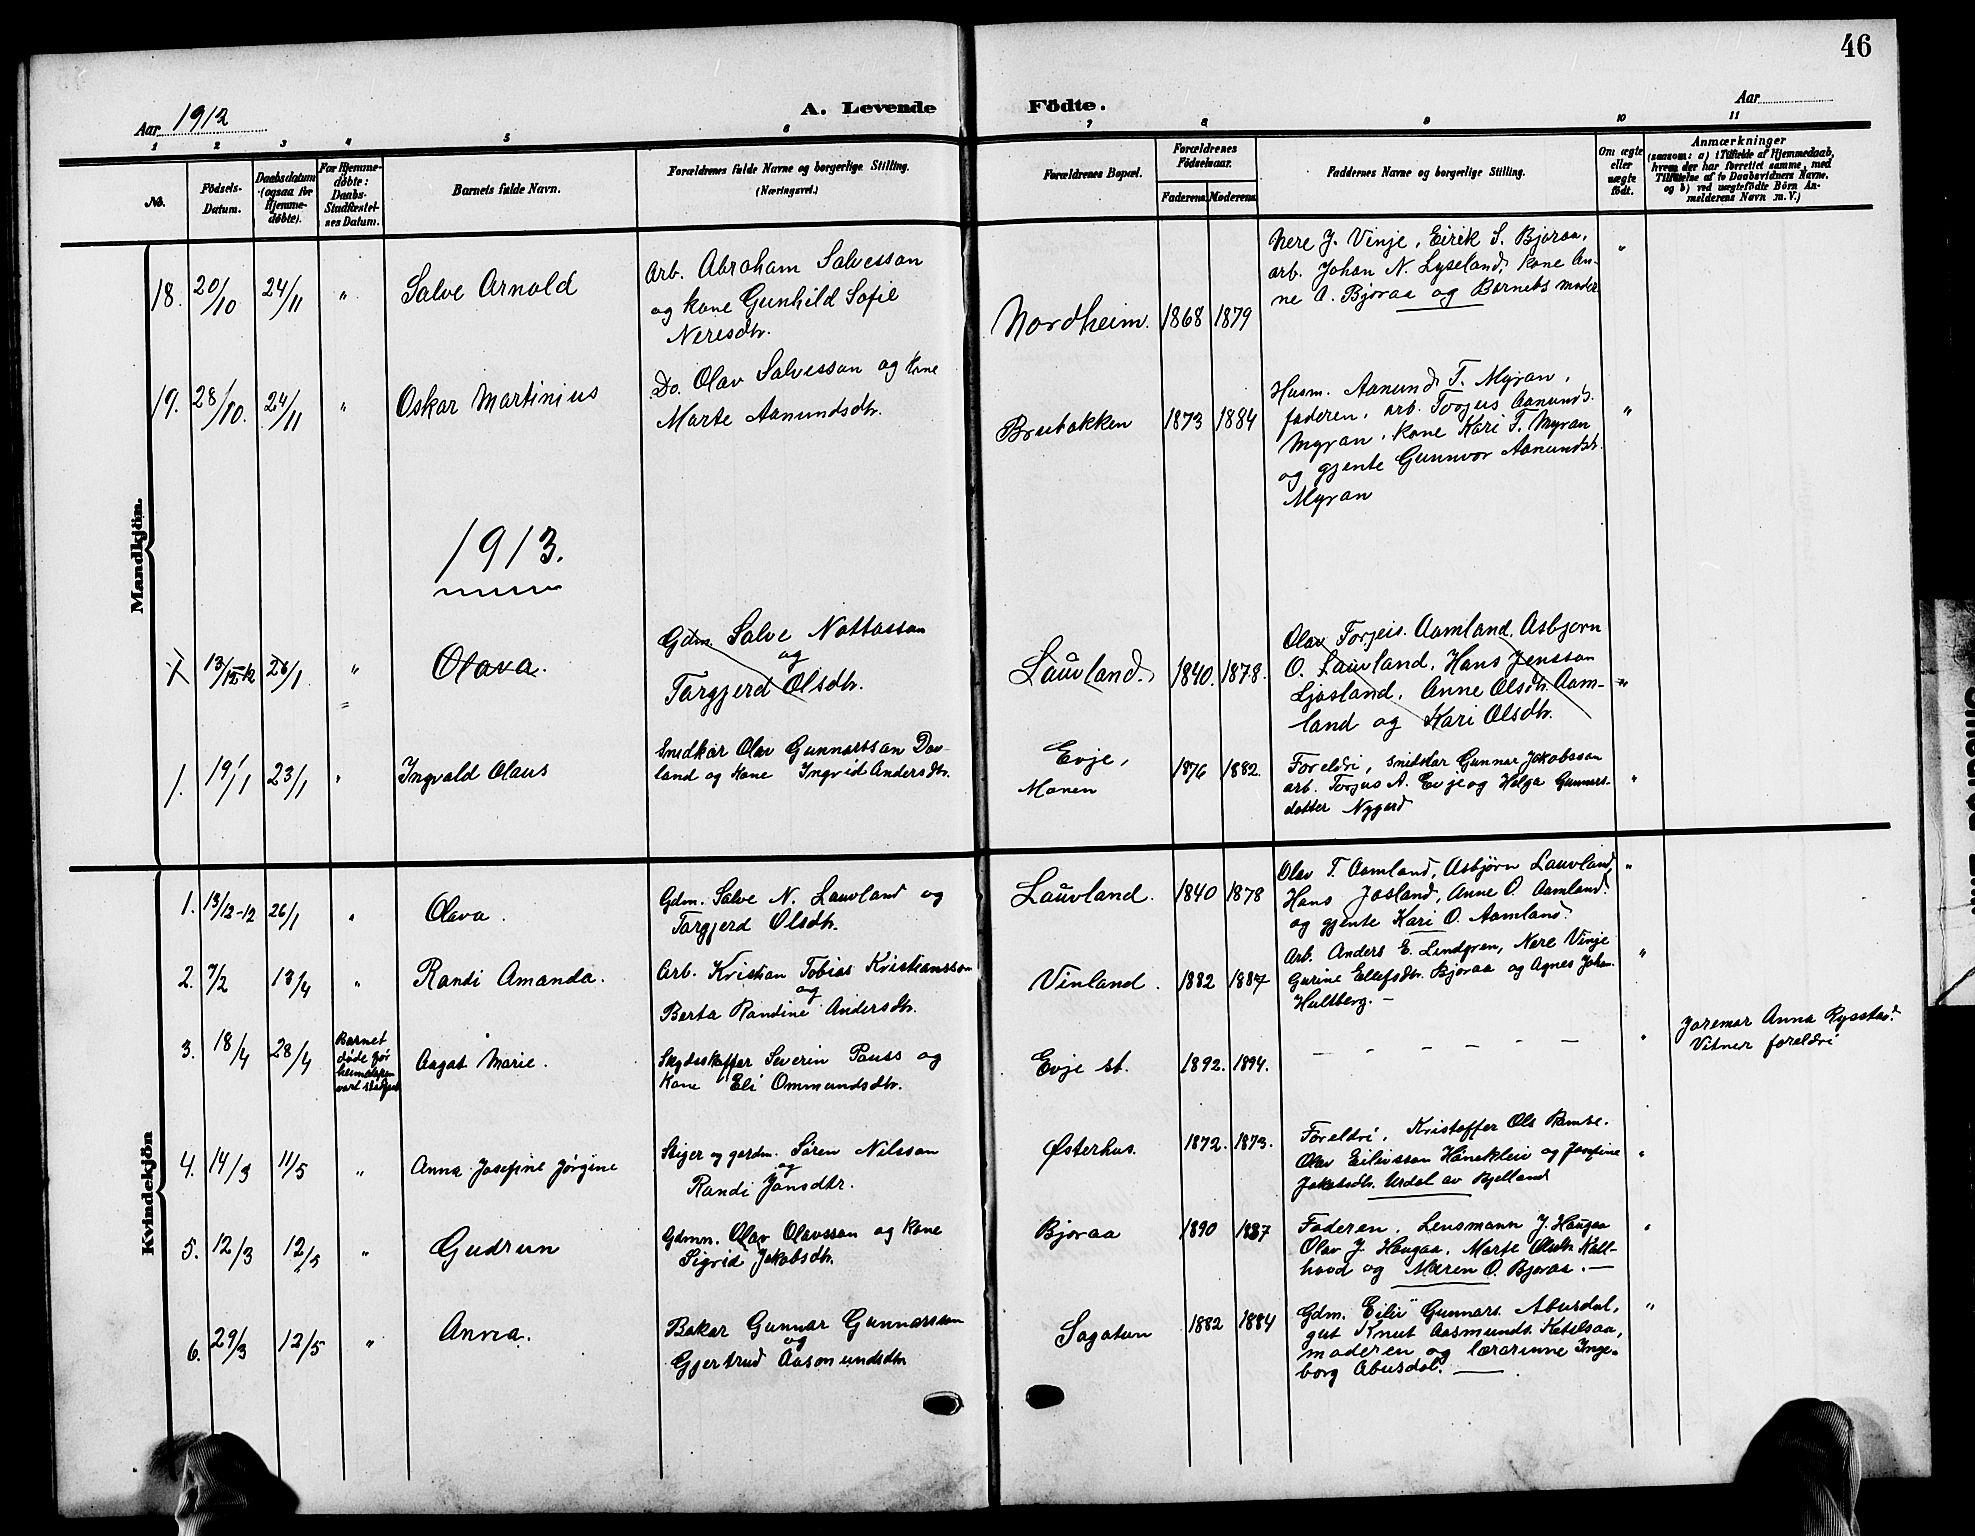 46
Aar 1912
A. Levende Födte.
Aar
1 2 3 4 5 6 7 8 9 10 11
No.
Födsels-
Datum.
Daabsdatum
(ogsaa for
Hjemme-
døbte).
For Hjemme-
døbte:
Daabs
Stadfæstel-
ses Datum.
Barnets fulde Navn.
Forældrenes fulde Navne og borgerlige Stilling.
(Næringsvei.)
Forældrenes Bopæl.
Forældrenes
Födselsaar.
Faderens Moderens
Faddernes Navne og borgerlige Stilling.
Om ægte
eller
uægte
født.
Anmærkninger
(saasom: a) i Tilfælde af Hjemmedaab,
hvem der har forrettet samme, med
Tilføielse af to Daabsvidners Navne,
og b) ved uægtefødte Börn An-
melderens Navn m. V.)
Mandkjön.
18. 20/10 24/11 " Salve Arnold
Arb. Abraham Salvesson
og kone Gunhild Sofie
Neresdtr.
Nordheim. 1868 1879
Nere J. Vinje, Eirik S. Bjoraa,
arb. Johan N. Lyseland, kone An-
ne A. Bjoraa og Barnets moder
"
19. 28/10. 24/11 " Oskar Martinius
Do. Olav Salvesson og kone
Marte Aanundsdtr.
Brubakken 1873 1884
Husm. Aanund T. Myran,
faderen, arb. Torjus Aanunds.
Myran, kone Kari T. Myran
og gjente Gunnvor Aanundsdtr.
Myran
"
1913.
1 13/12-12 26/1 " Olava.
Gdm. Salve Nottosson
og
Torgjerd Olsdtr.
Lauvland. 1840. 1878.
Olav Torjeis. Aamland, Asbjorn
O. Lauvland, Hans Jensson
Ljosland, Anne Olsdtr. Aam-
land og Kari Olsdtr.
"
1. 19/1 23/1 " Ingvald Olaus
Snedkar Olav Gunnarsson Dov-
land og kone Ingrid Andersdtr.
Evje,
Monen
1876 1882.
Foreldri, snikkar Gunnar Jakobsson
arb. Torjus A. Evje og Helga Gunnars-
dotter Nygerd
"
Kvindekjön
1. 13/12-12 26/1 " Olava.
Gdm. Salve N. Lauvland og
Torgjerd Olsdtr.
Lauvland. 1840 1878
Olav T. Aamland, Asbjørn Lauvland,
Hans Josland, Anne O. Aamland
og gjente Kari O. Aamland.
"
2. 7/2 13/4 " Randi Amanda.
Arb. Kristian Tobias Kristiansson
og
Berta Randine Andersdtr.
Vinland. 1882 1887
Arb. Anders E. Lindgren, Nere Vinje
Gurine Ellefsdtr. Bjoraa og Agnes Johan.
Hultberg. —
"
3. 18/4 28/4
Barnet
døde før
heimedaapen
vart stadfest
Aagot Marie.
Skydsskaffer Severin Pauss og
Kone Eli Ommundsdtr.
Evje st. 1892. 1894.
— — — — — —
"
Joremor Anna Rysstad.
Vitner foreldri
4. 14/3 11/5 " Anna Josefine Jørgine
Stiger og gardm. Søren Nilsson
og
Randi Jonsdtr.
Østerhus. 1872. 1873.
Foreldri, Kristoffer Ols
Olav Eilivsson Hånekleiv og Josefine
Jakobsdtr. Urdal av Bjelland
"
5. 12/3 12/5 " Gudrun
Gdmn. Olav Olavsson og kone
Sigrid Jakobsdtr.
Bjoraa 1890 1887
Faderen, Lensmann J. Haugaa
Olav J. Haugaa, Marte Olsdtr. Kall-
hovd og Maren O. Bjoraa. —
"
6. 29/3 12/5 " Anna.
Bakar Gunnar Gunnarsson
og
Gjertrud Aasmundsdtr
Sagatun 1882 1884
Gdm. Eiliv Gunnars. Abusdal,
gut Knut Aasmunds. Ketelsaa,
moderen og lærarinne Inge-
borg Abusdal. —
"